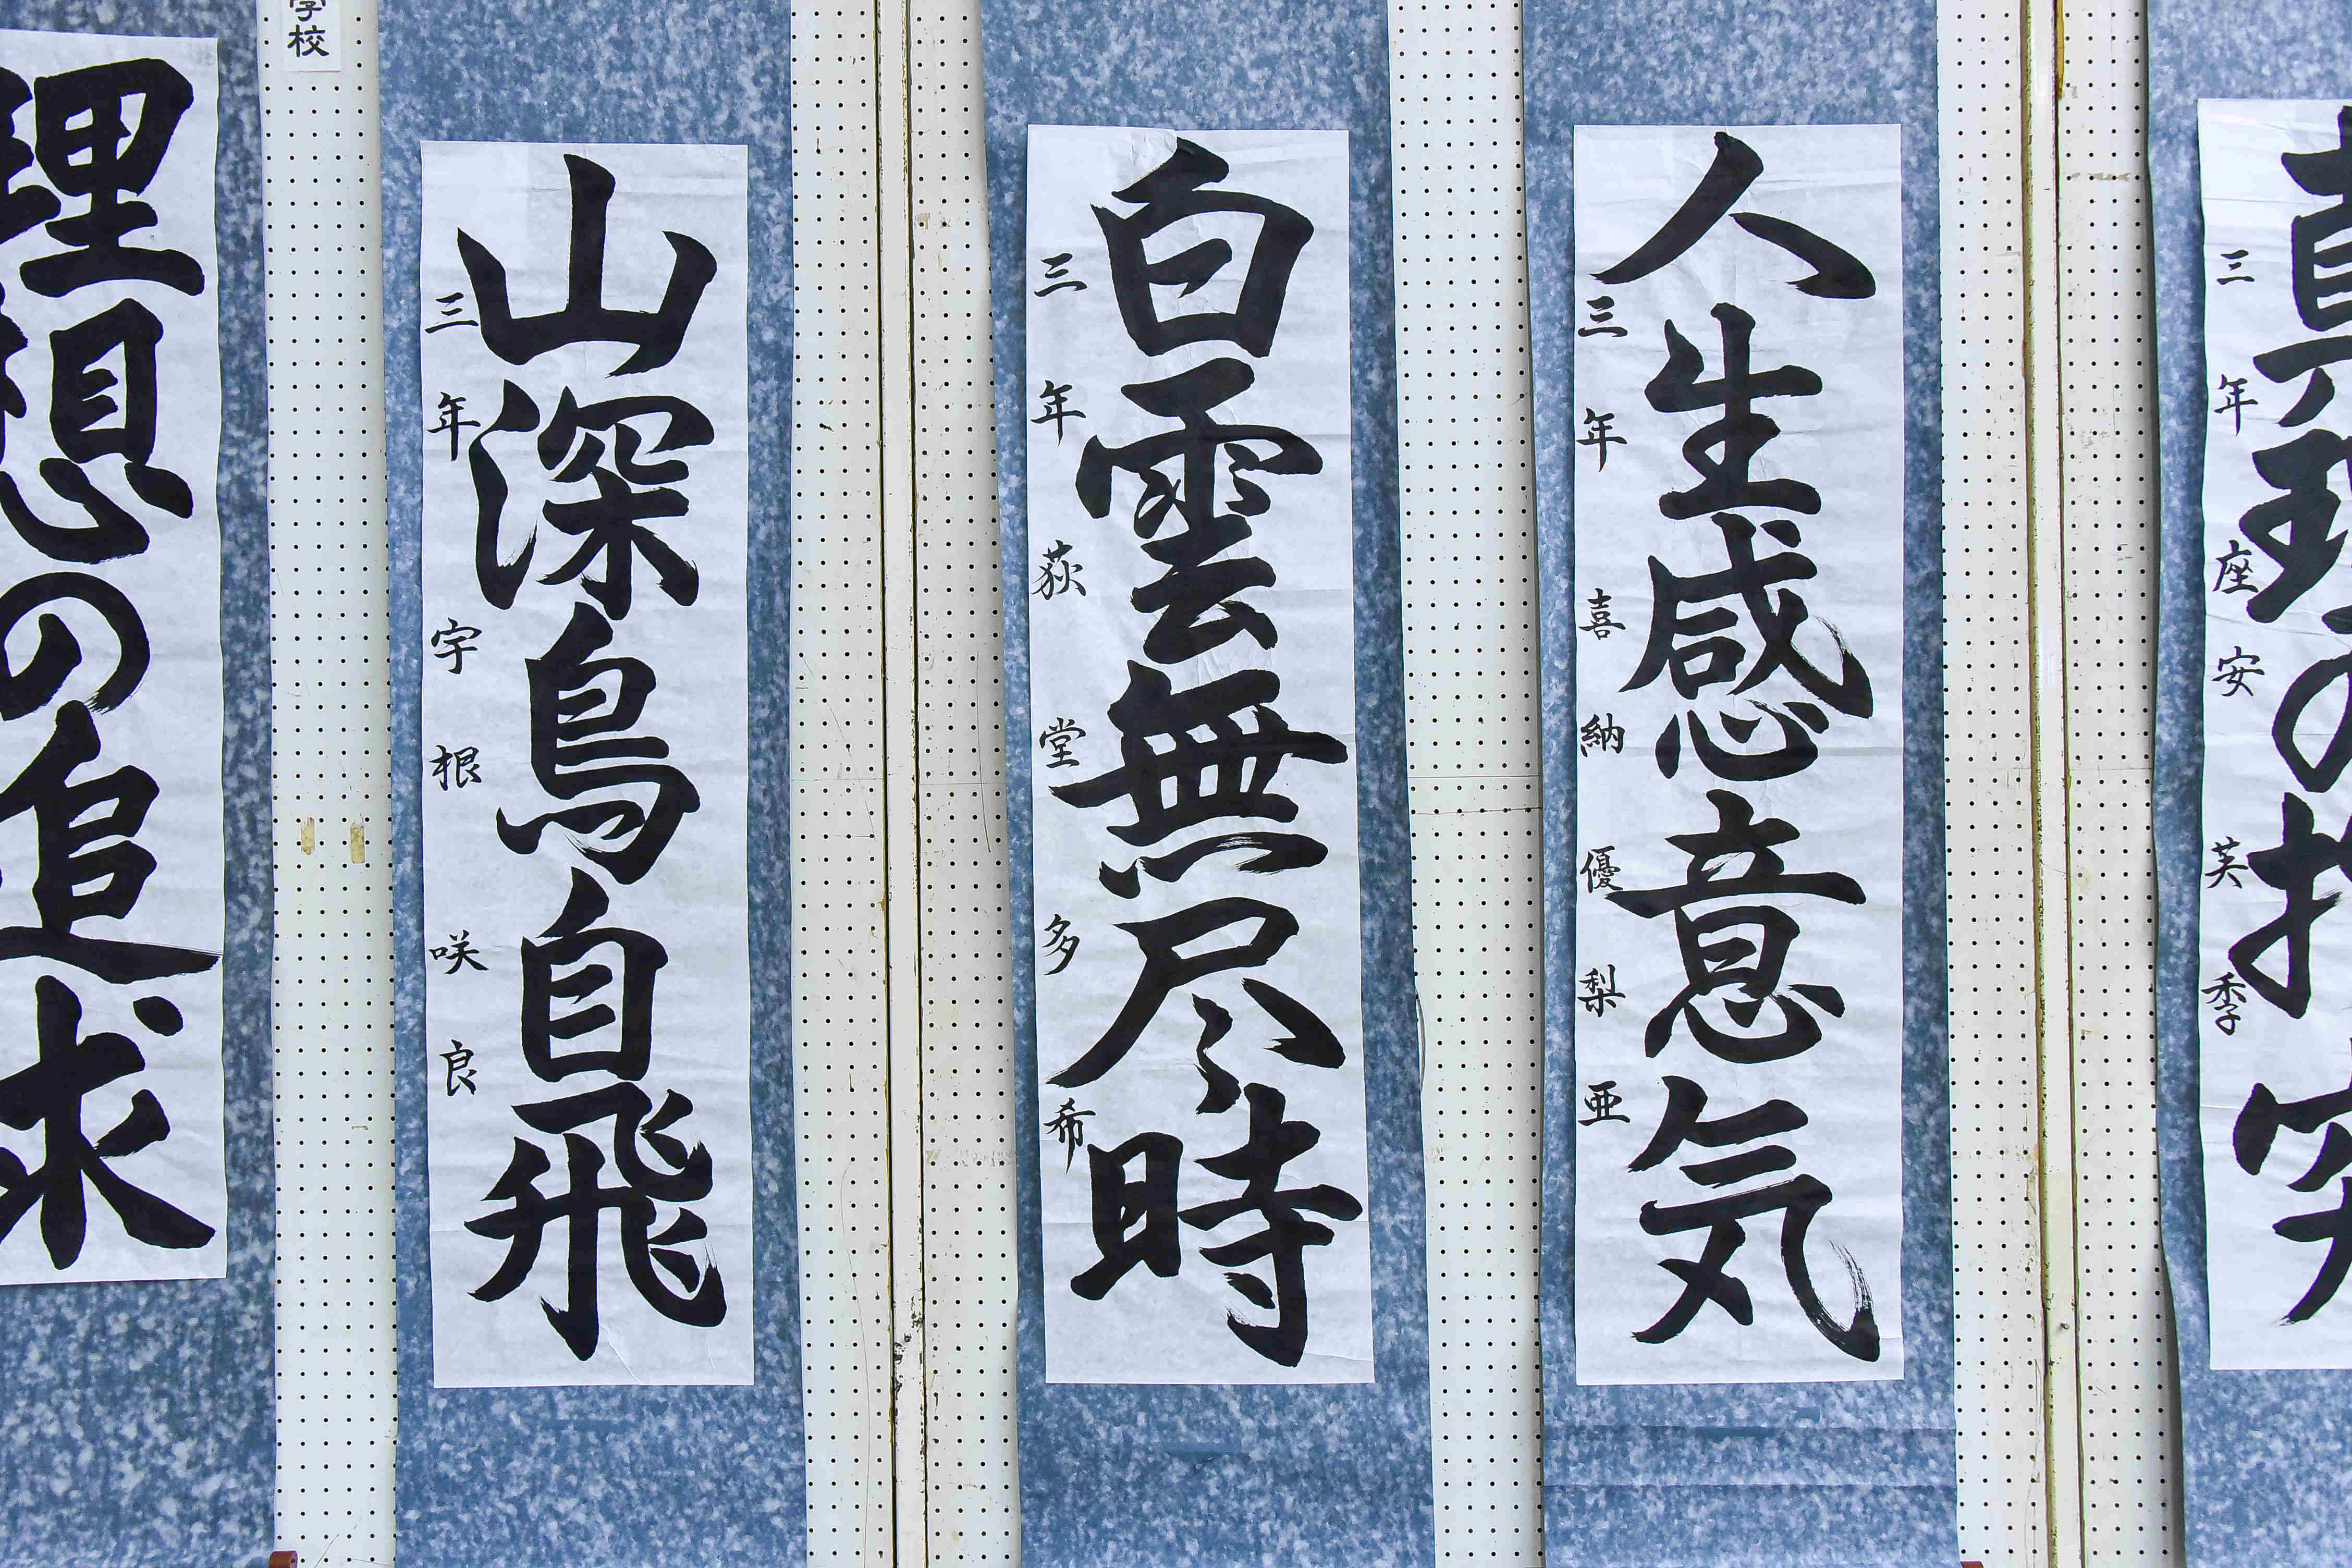 真理の
三年 座安芙季
人生感意気
三年 喜納優梨亜
白雲無尽時
三年 荻堂多希
山深鳥自飛
三年 宇根咲良
学校
理想の追求